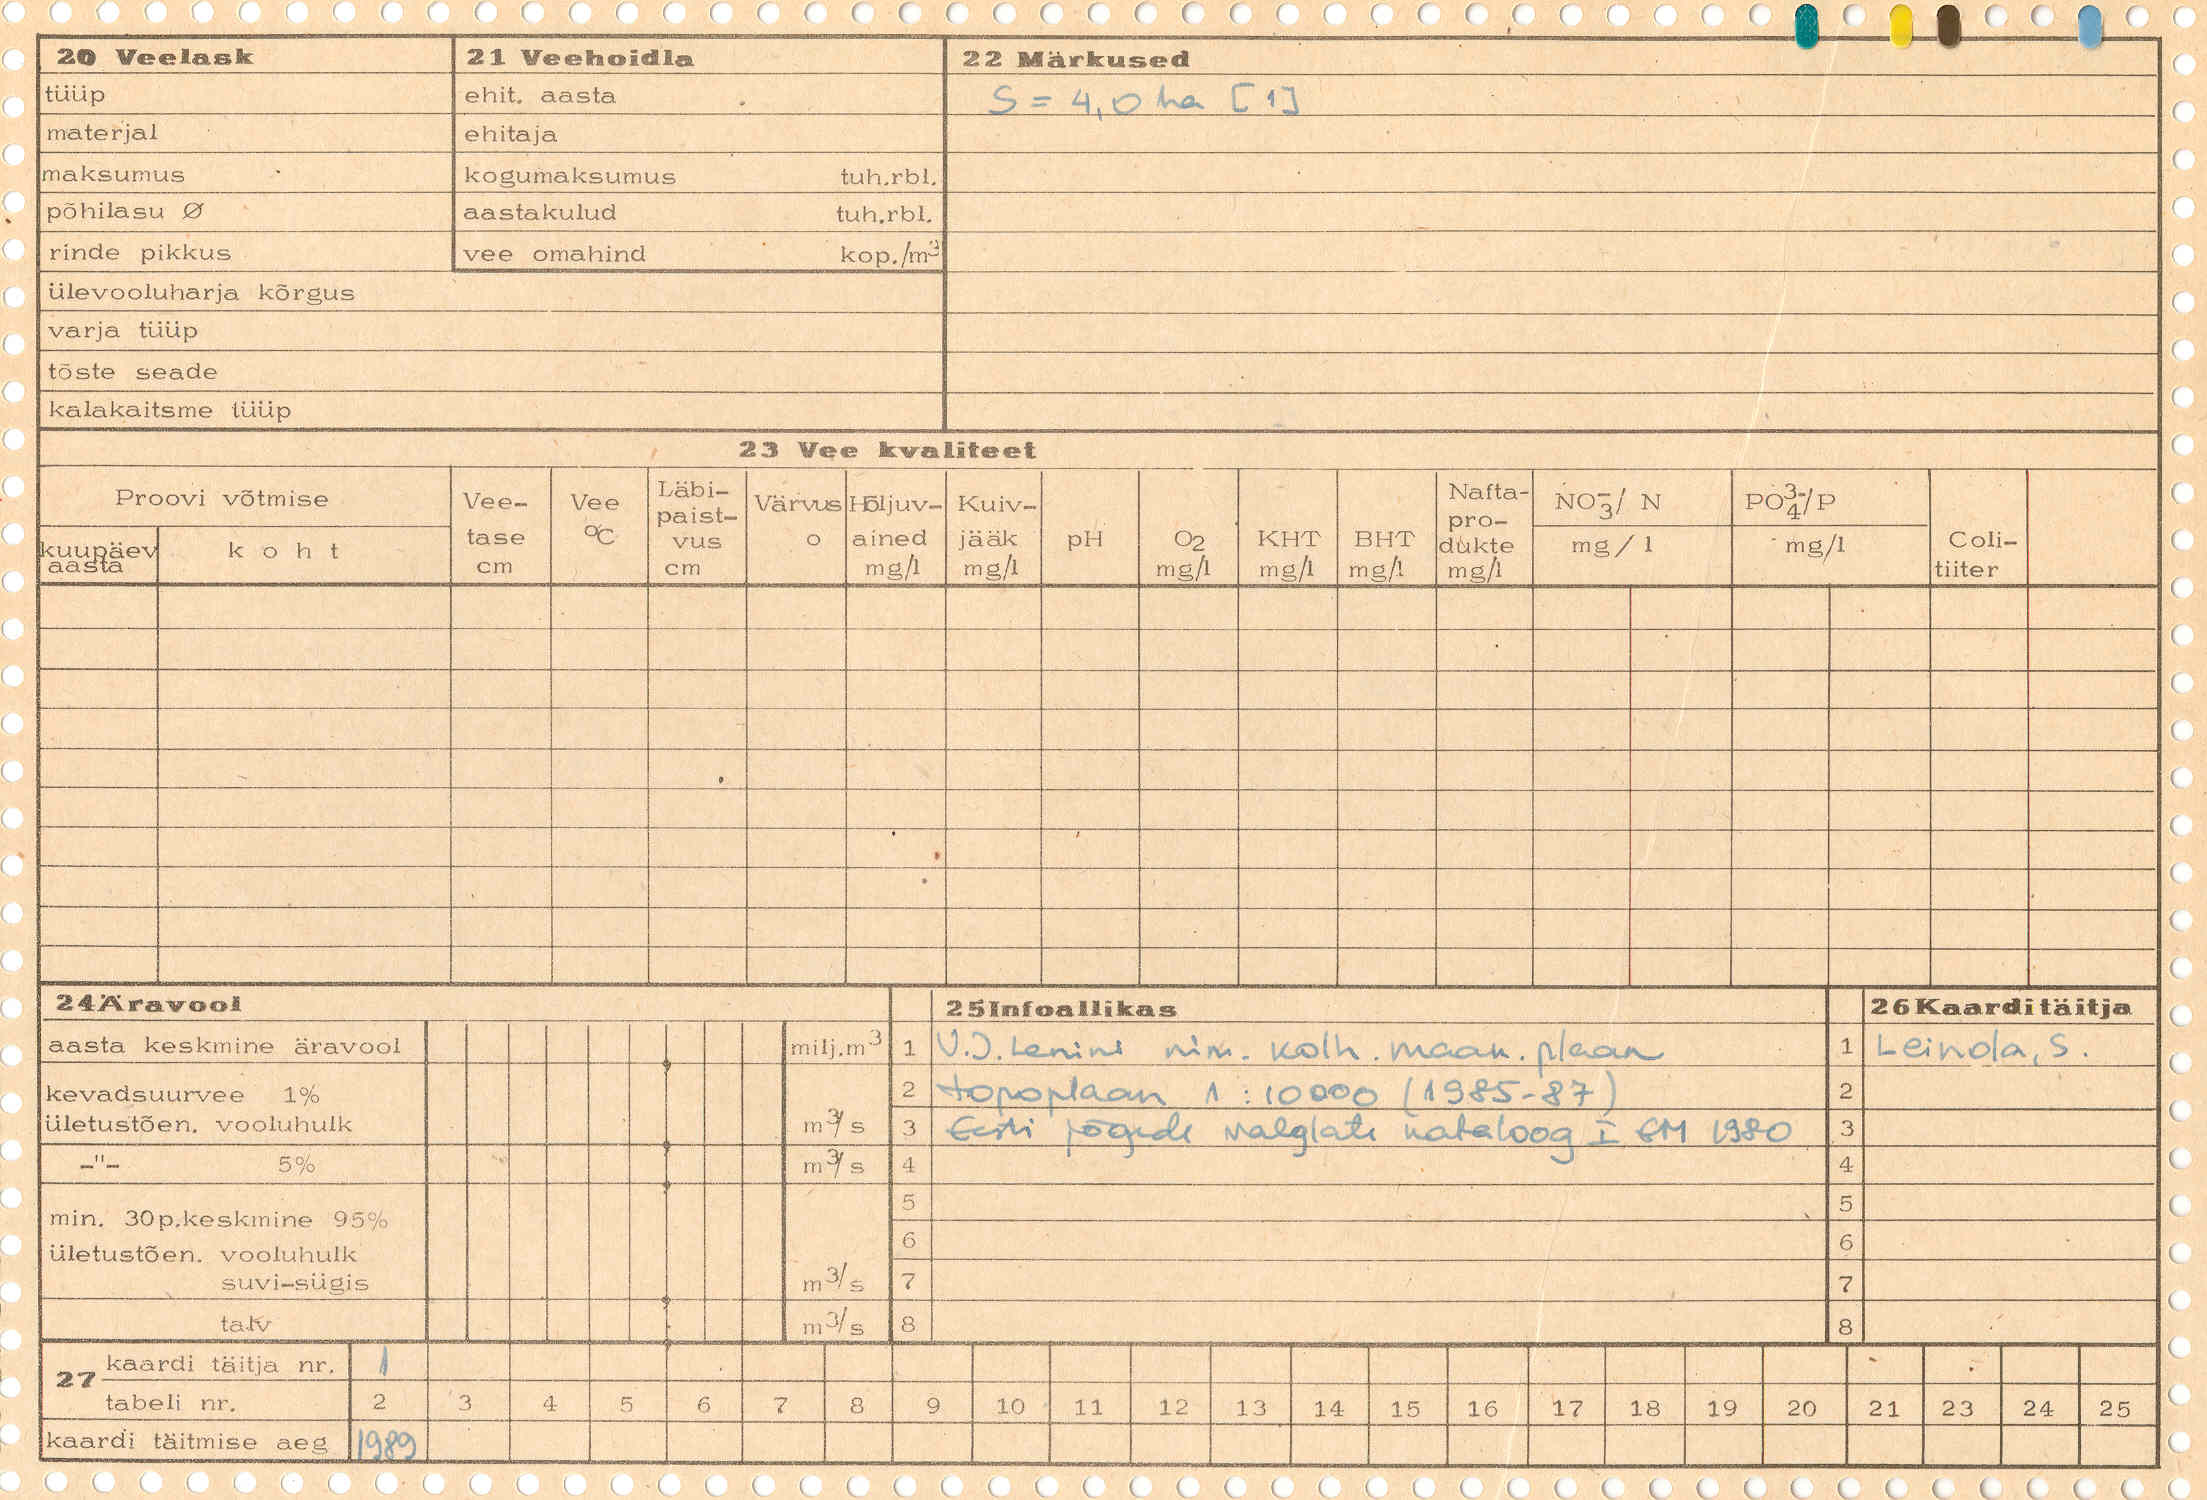 20 Veelask
tüüp
materjal
maksumus
põhilasu Ø
rinde pikkus
ülevooluharja kõrgus
varja tüüp
tõste seade
kalakaitsme tüüp
21 Veehoidla
ehit. aasta
ehitaja
kogumaksumus tuh.rbl.
aastakulud tuh.rbl.
vee omahind kop./m³
22 Märkused
S = 4,0 ha [1]
23 Vee kvaliteet
Proovi võtmise
kuupäev
aasta
koht
Vee-
tase
cm
Vee
°C
Läbi-
paist-
vus
cm
Värvus
o
Hõljuv-
ained
mg/l
Kuiv-
jääk
mg/l
pH
O2
mg/l
KHT
mg/l
BHT
mg/l
Nafta-
pro-
dukte
mg/l
NO₃⁻/ N
mg/l
PO₄³⁻/P
mg/l
Coli-
tiiter
24 Äravool
aasta keskmine äravool milj.m³
kevadsuurvee 1%
ületustõen. vooluhulk m³/s
-"- 5% m³/s
min. 30p.keskmine 95%
ületustõen. vooluhulk
suvi-sügis m³/s
talv m³/s
25 Infoallikas
1 V.I. Lenini nim. kolh. maak. plaan
2 topoplaan 1:10000 (1985-87)
3 Eesti jõgede valglate kataloog I EM 1980
4
5
6
7
8
26 Kaarditäitja
1 Leinola, S.
2
3
4
5
6
7
8
27
kaardi täitja nr. 1
tabeli nr. 2 3 4 5 6 7 8 9 10 11 12 13 14 15 16 17 18 19 20 21 23 24 25
kaardi täitmise aeg 1989